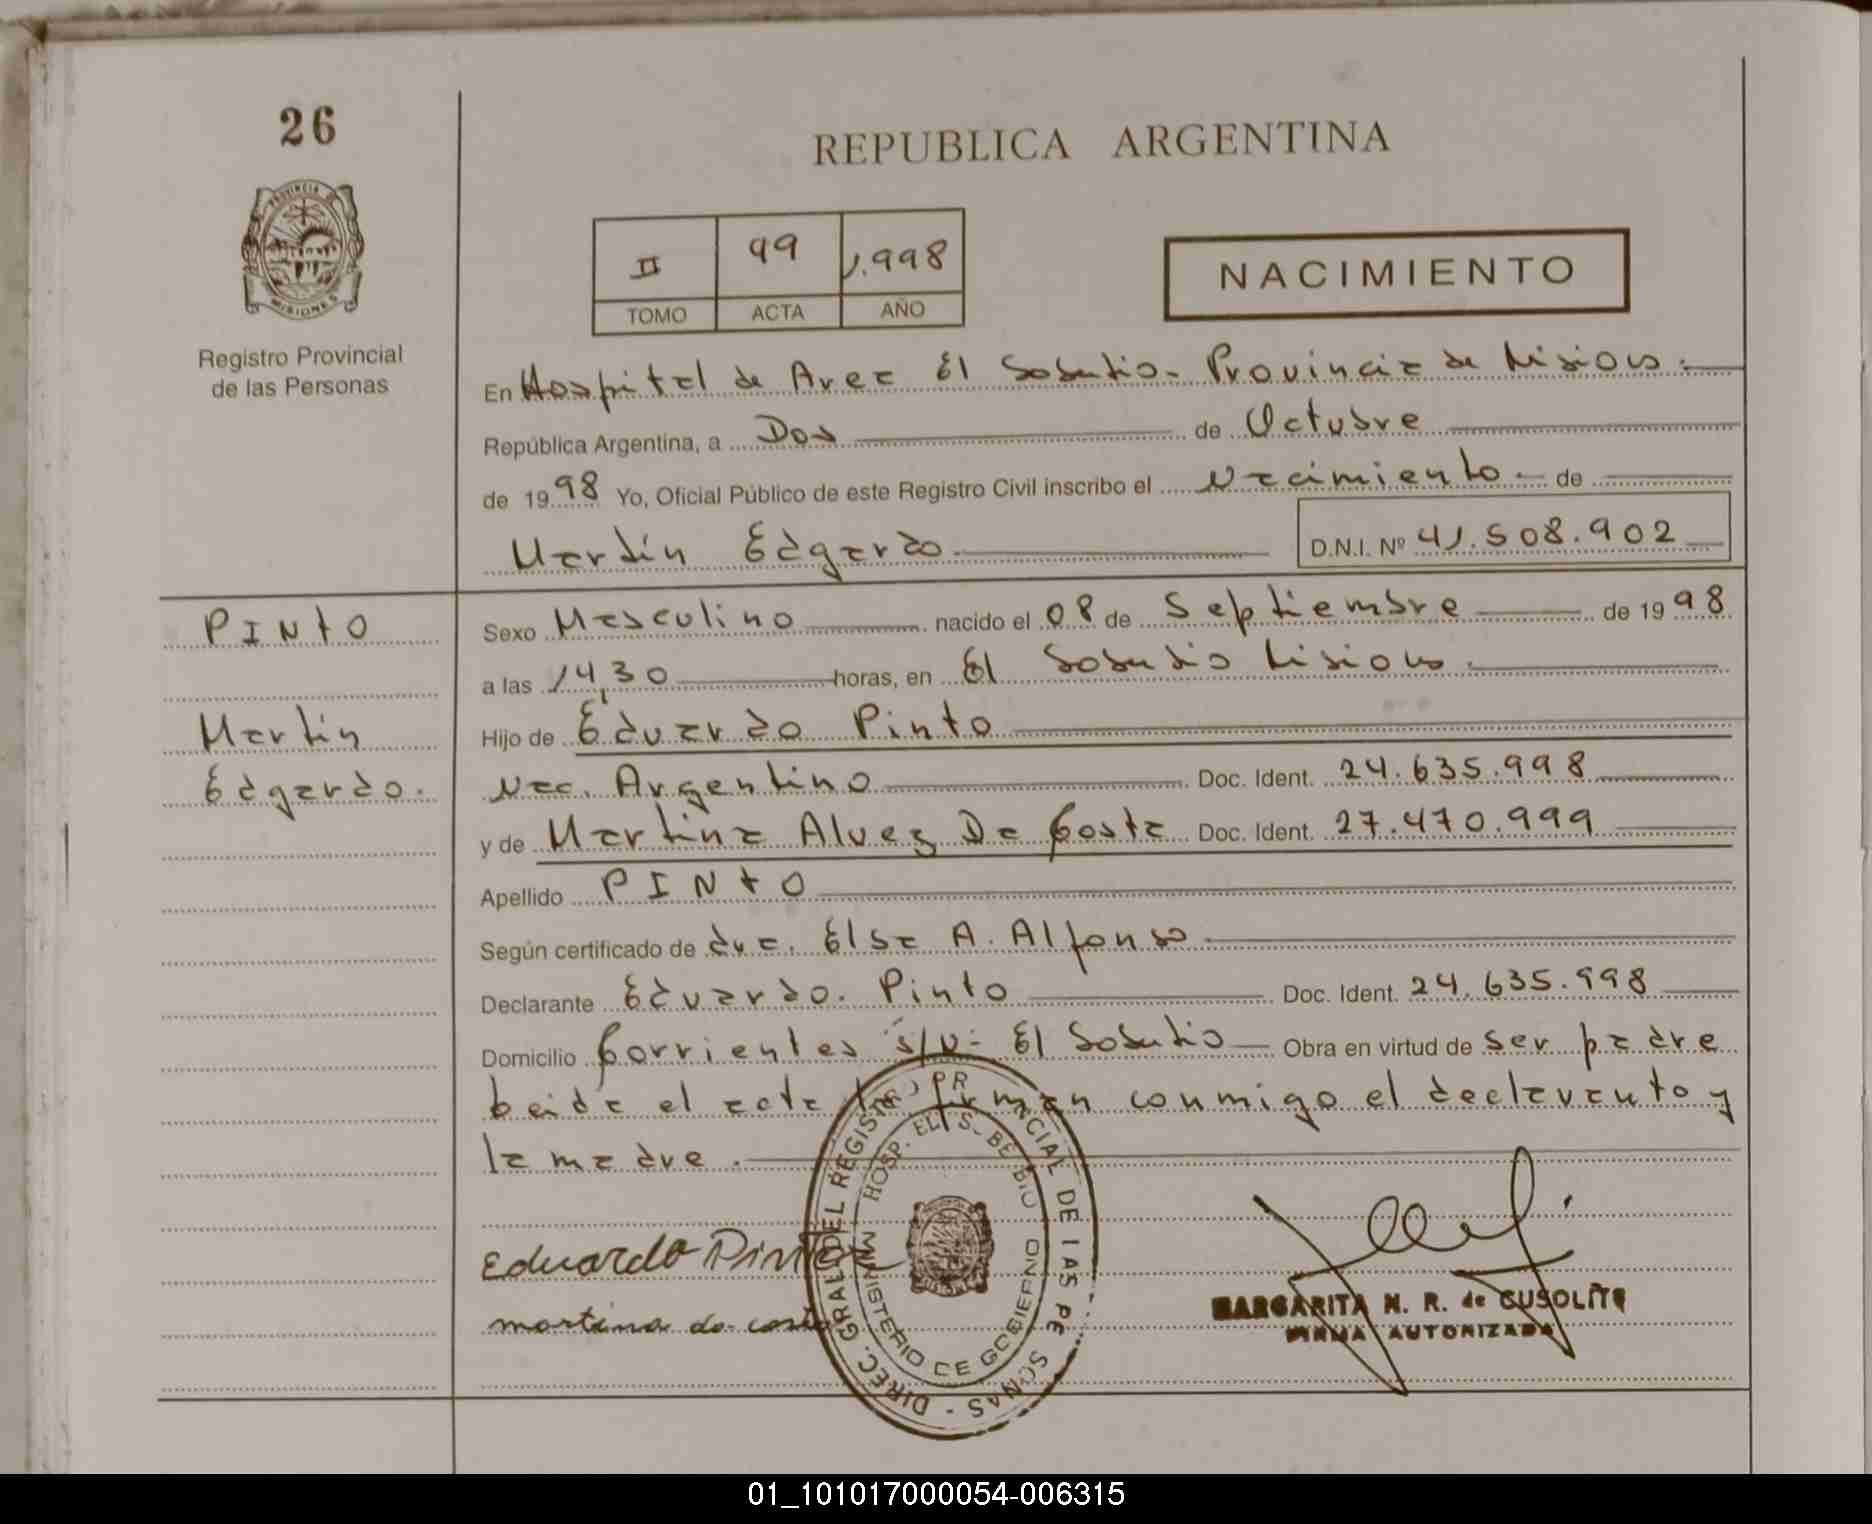 26
REPUBLICA ARGENTINA
PROVINCIA DE
MISIONES
Registro Provincial
de las Personas
II 99 1.998
TOMO ACTA AÑO
NACIMIENTO
En Hospital de Area El Soberbio - Provincia de Misiones.-
República Argentina, a Dos de Octubre
de 1998 Yo, Oficial Público de este Registro Civil inscribo el Nacimiento - de
Martín Edgardo.
D.N.I. Nº 41.508.902
PINTO
Martín
Edgardo.
Sexo Masculino nacido el 08 de Septiembre de 1998
a las 14,30 horas, en El Soberbio Misiones.
Hijo de Eduardo Pinto
Nac. Argentino Doc. Ident. 24.635.998
y de Martina Alvez Da Costa Doc. Ident. 27.470.999
Apellido PINTO
Según certificado de dra. Elsa A. Alfonso
Declarante Eduardo. Pinto Doc. Ident. 24.635.998
Domicilio Corrientes s/n- El Soberbio Obra en virtud de ser padre
Leida el acta la firman conmigo el declarante y
la madre.
Eduardo Pinto
martina da costa
DIREC. GRAL DEL REGISTRO PROVINCIAL DE LAS PERSONAS -
HOSP. EL SOBERBIO
MINISTERIO DE GOBIERNO
MARGARITA N. R. de CUSOLITO
FIRMA AUTORIZADA
01_101017000054-006315